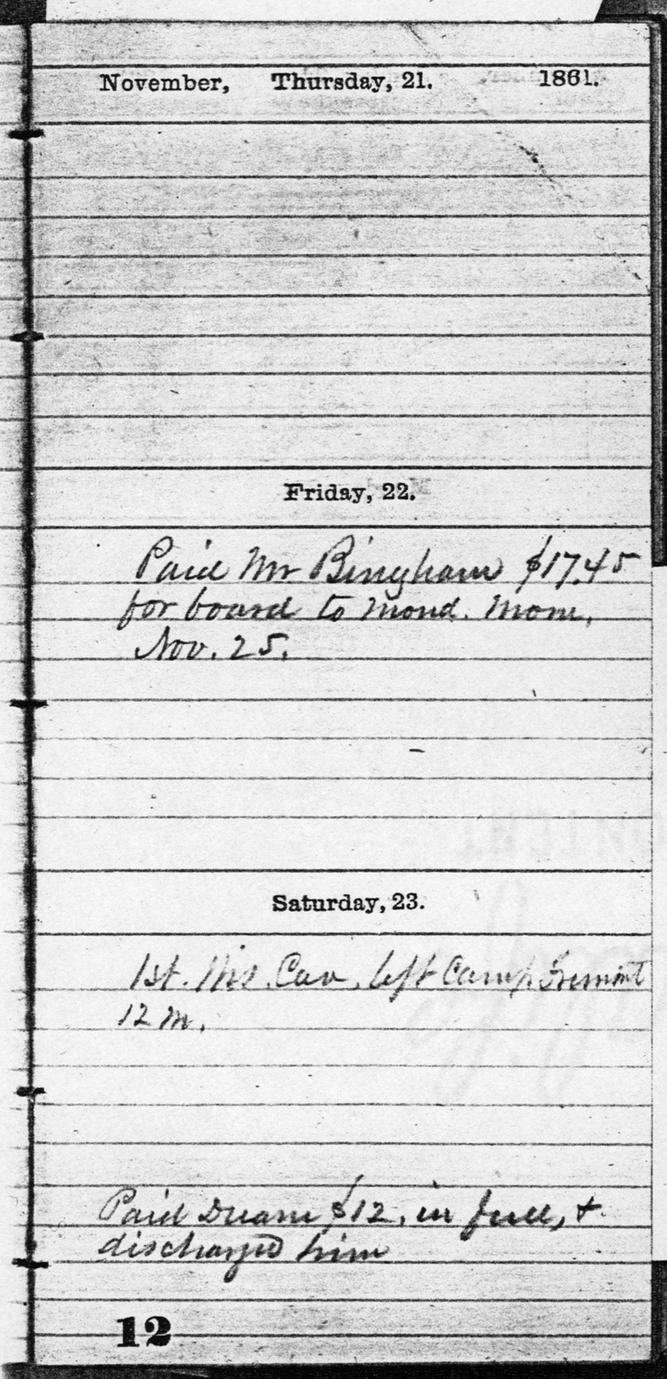 November, Thursday, 21. 1861.
Friday, 22.
Paid Mr Bingham $17.45
for board to Mond. Morn,
Nov. 25.
Saturday, 23.
1st. Cav. left Camp Fremont
12 M.
Paid Duane $12, in full, &
discharged him
12